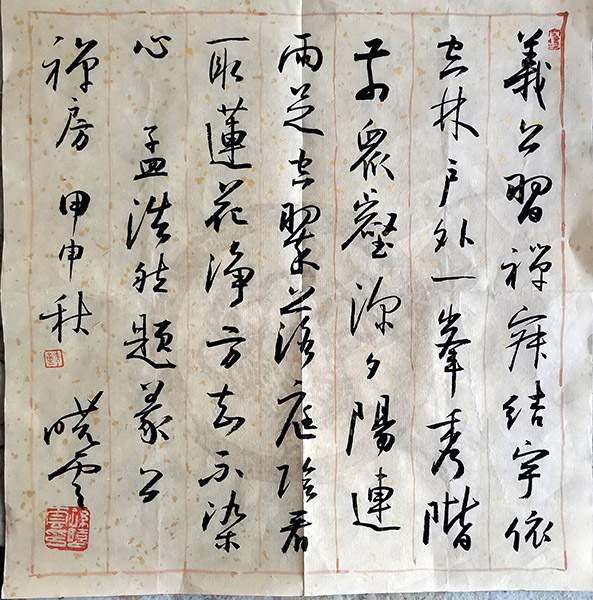 義公習禪寂結宇依
空林戶外一峯秀階
前眾壑深夕陽連
雨足空翠落庭陰看
取蓮花淨方知不染
心 孟浩然題義公
禪房 甲申秋 曉雲